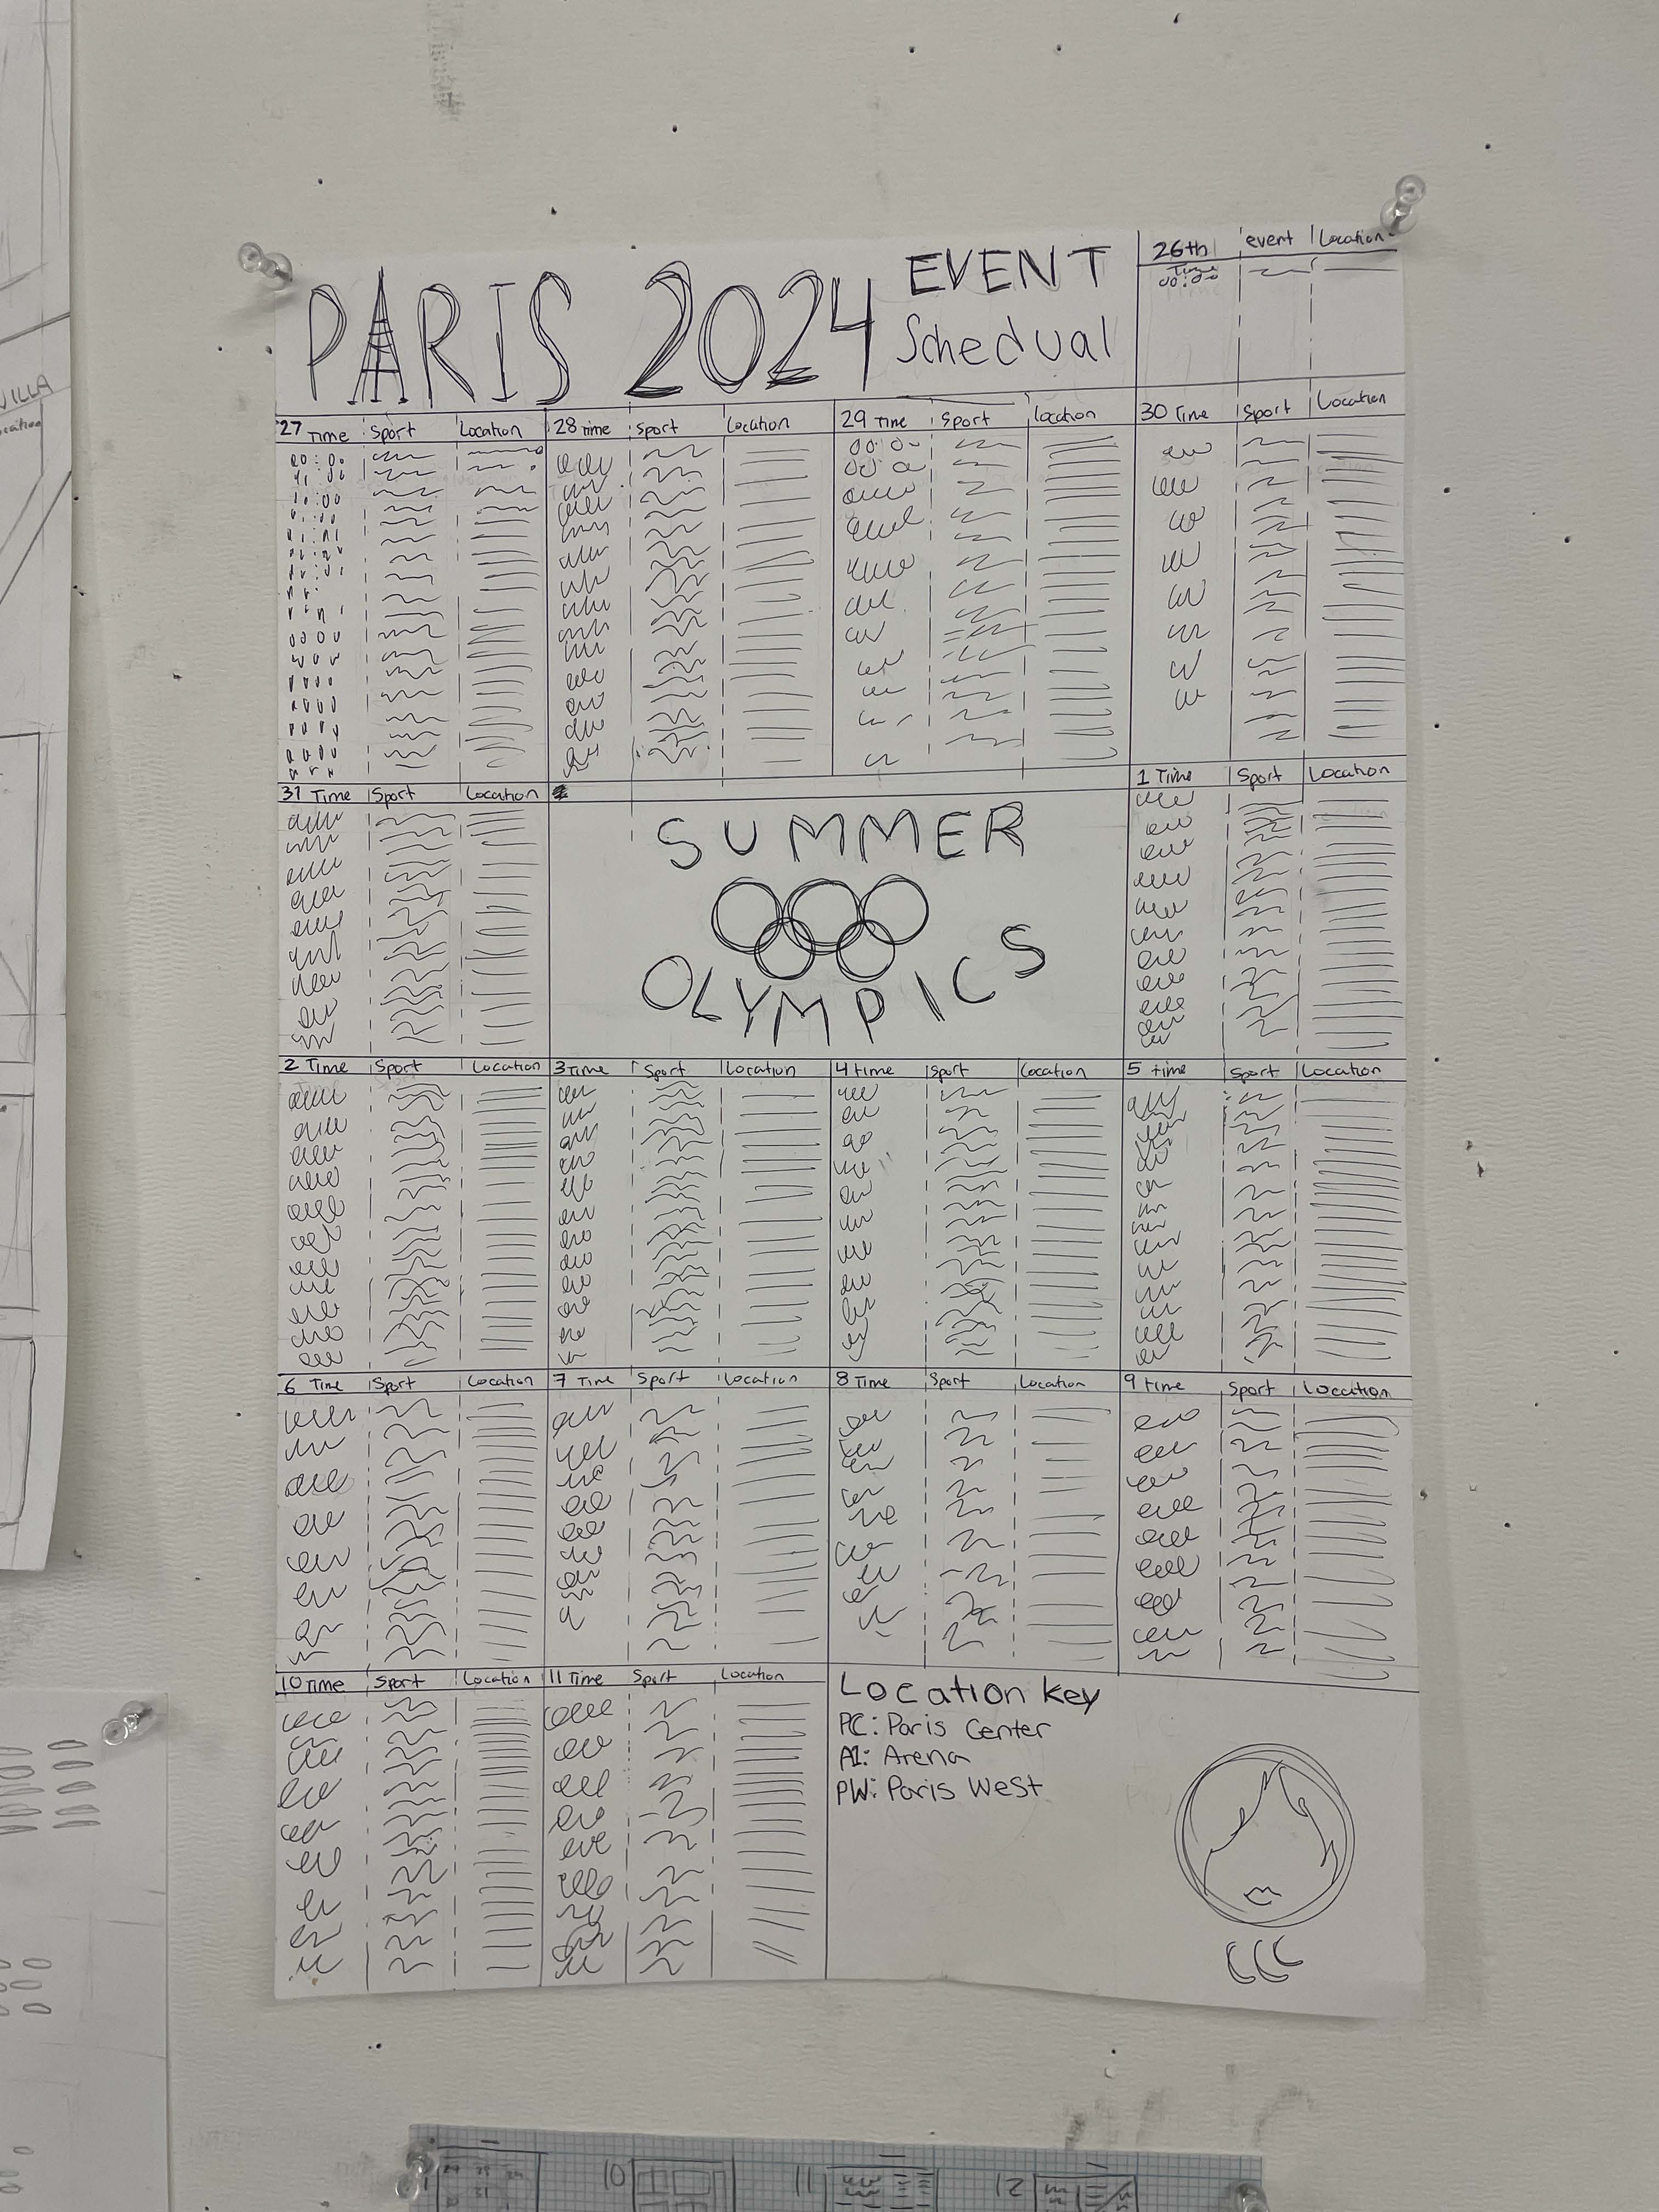 PARIS 2024
EVENT
Schedual
26th event Location
Time
00:00
27 Time Sport Location
28 Time Sport Location
29 Time Sport Location
30 Time Sport Location
31 Time Sport Location
SUMMER
OLYMPICS
1 Time Sport Location
2 Time Sport Location
3 Time Sport Location
4 time Sport Location
5 time Sport Location
6 Time Sport Location
7 Time Sport Location
8 Time Sport Location
9 time Sport Location
10 Time Sport Location
11 Time Sport Location
Location Key
PC: Paris Center
A1: Arena
PW: Paris West
VILLA
10
11
12